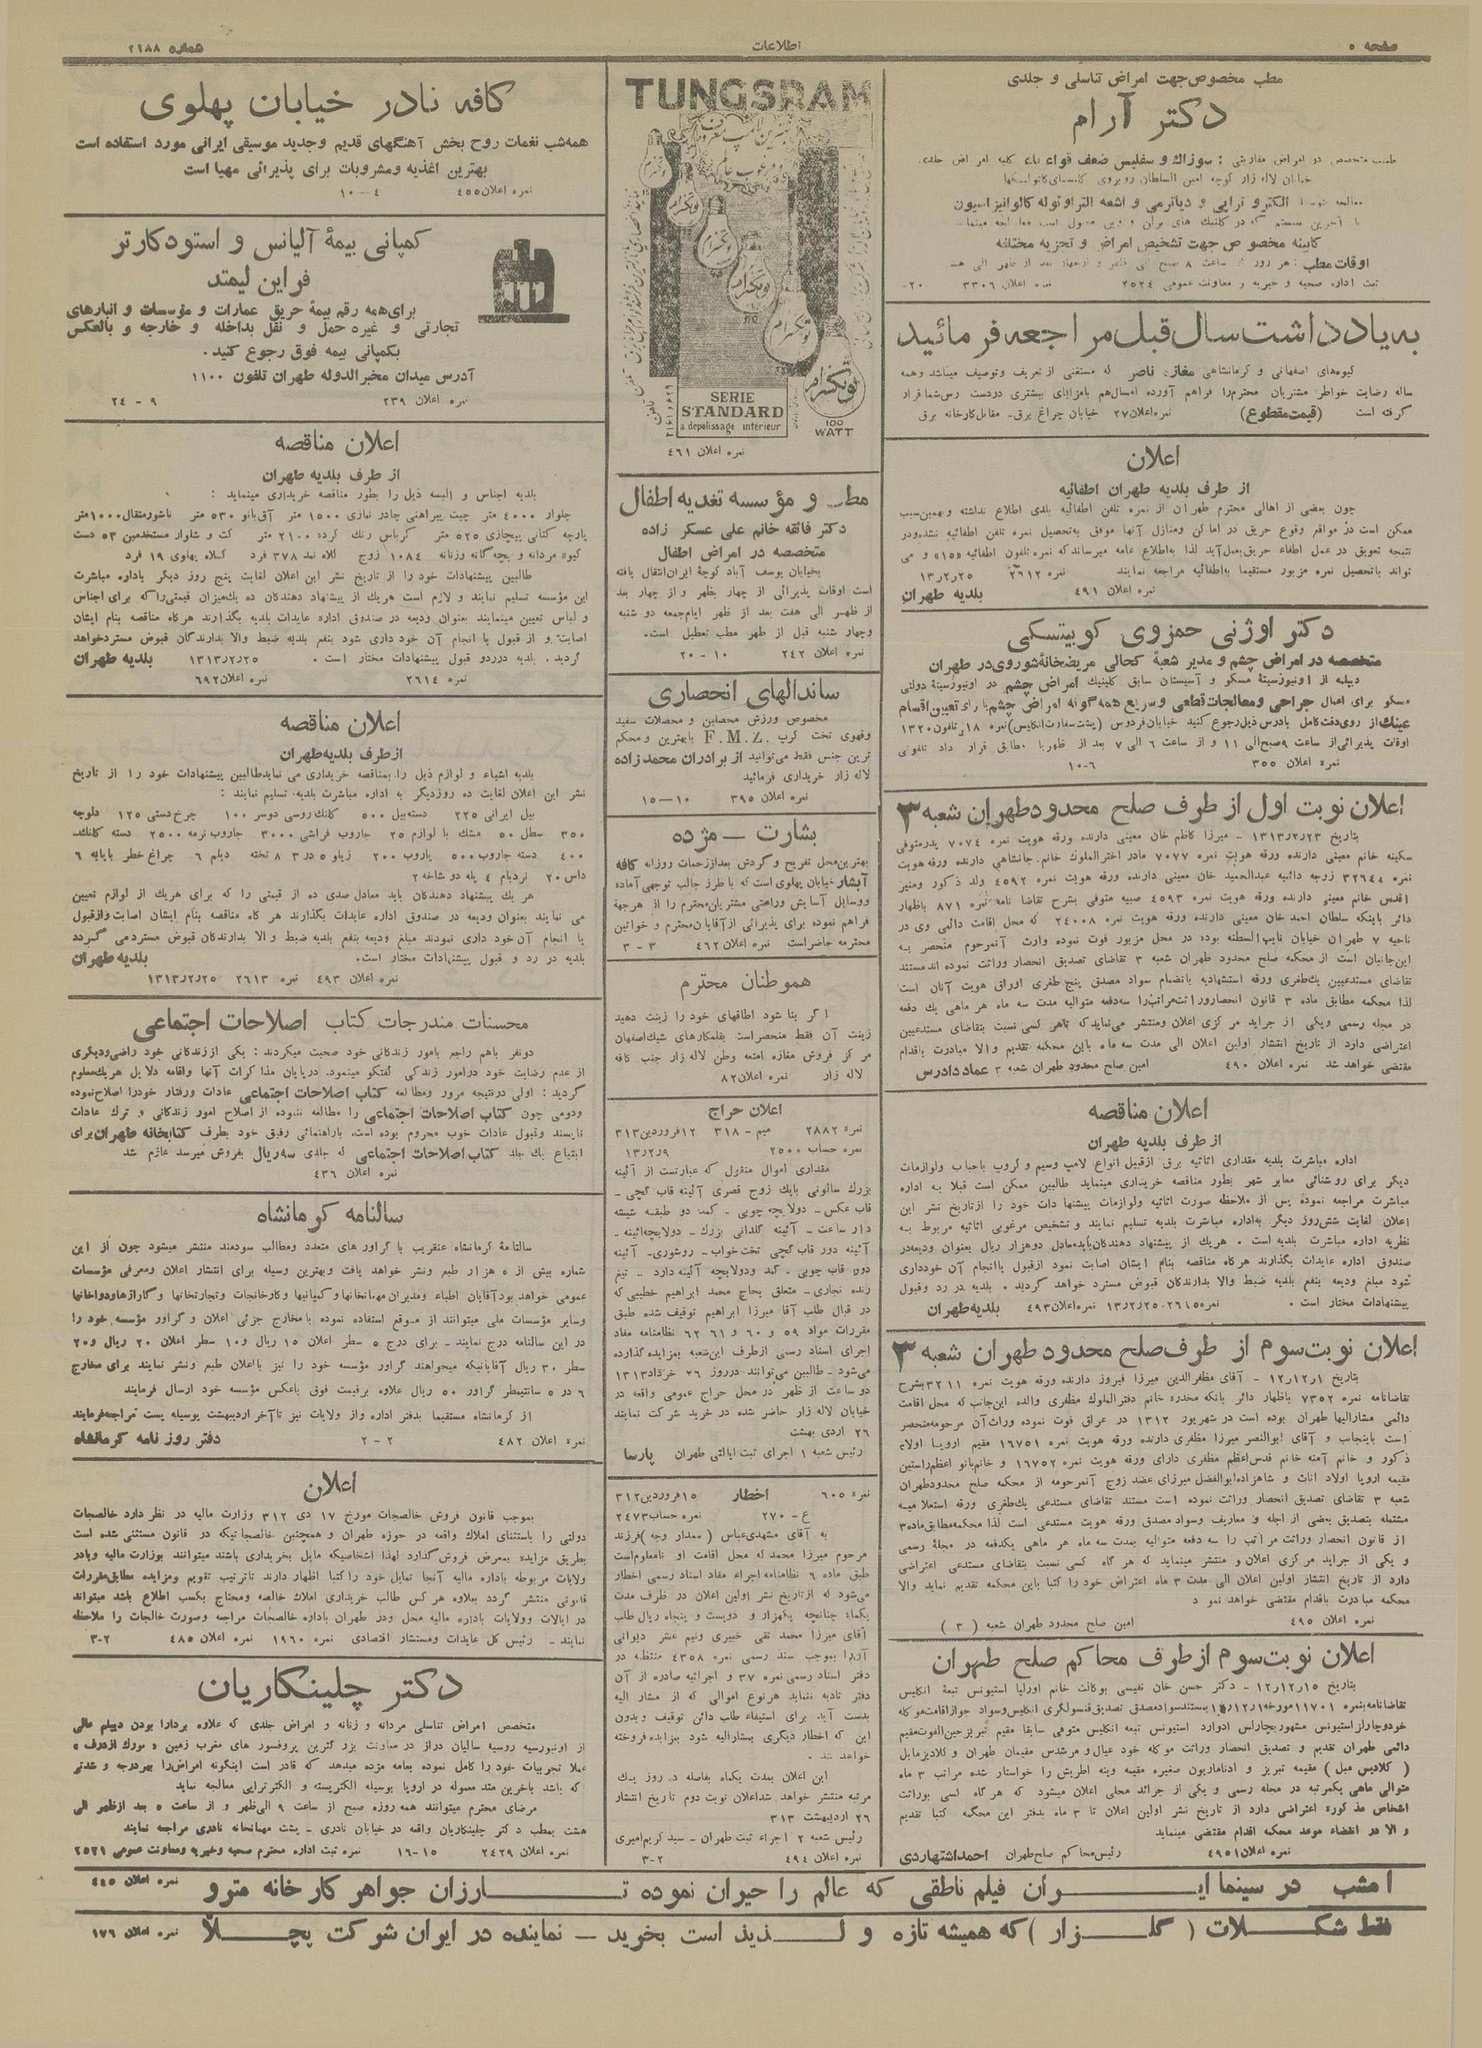 صفحه ۵
اطلاعات
شماره ۲۱۸۸
مطب مخصوص جهت امراض تناسلی و جلدی
دکتر آرام
خیابان لاله زار کوچه امین السلطان روبروی کلیسای کاتولیکها
کابینه مخصوص جهت تشخیص امراض و تجزیه مختلفه
ثبت اداره صحیه و خیریه و معاونت عمومی ۲۵۲۴ نمره اعلان ۳۳۰۶ ۲۰-
به یادداشت سال قبل مراجعه فرمائید
گیوه‌های اصفهانی و کرمانشاهی مغازه ناصر که مستغنی از تعریف و توصیف میباشد و همه
ساله رضایت خواطر مشتریان محترم را فراهم آورده امسال هم بامزایای بیشتری در دست رس شما قرار
گرفته است (قیمت مقطوع) نمره اعلان ۲۷ خیابان چراغ برق - مقابل کارخانه برق
اعلان
از طرف بلدیه طهران اطفائیه
چون بعضی از اهالی محترم طهران از نمره تلفن اطفائیه بلدی اطلاع نداشته و بهمین سبب
ممکن است در مواقع وقوع حریق در اماکن و منازل آنها موفق به تحصیل نمره تلفن اطفائیه نشده و در
نتیجه تعویق در عمل اطفاء حریق بعمل آید لذا به اطلاع عامه میرساند که نمره تلفون اطفائیه «۱۵» و می
تواند باتحصیل نمره مزبور مستقیما به اطفائیه مراجعه نمایند نمره ۲۶۱۲ ۱۳/۲/۲۵
نمره اعلان ۴۹۱ بلدیه طهران
دکتر اوژنی حمزوی کوبیتسکی
متخصصه در امراض چشم و مدیر شعبهٔ کحالی مریضخانهٔ شوروی در طهران
دیپلمه از اونیورسیتهٔ مسکو و آسیستان سابق کلینیک امراض چشم در اونیورسیتهٔ دولتی
مسکو برای اعمال جراحی و معالجات قطعی و سریع همه گونه امراض چشم با رای تعیین اقسام
عینک از روی دقت کامل بادرس ذیل رجوع کنید خیابان فردوس (پشت سفارت انگلیس) نمره ۱۸ تلفون ۱۳۲۰
اوقات پذیرائی از ساعت ۹ صبح الی ۱۱ و از ساعت ۶ الی ۷ بعد از ظهر یا مطابق قرار داد تلفونی
نمره اعلان ۳۵۵ ۱۰-۶
اعلان نوبت اول از طرف صلح محدود طهران شعبه ۳
بتاریخ ۱۳۱۳/۲/۲۳ - میرزا کاظم خان معینی دارنده ورقه هویت نمره ۷۰۷۴ پدر متوفی
سکینه خانم معینی دارنده ورقه هویت نمره ۷۰۷۷ مادر اخترالملوک خانم جانشاهی دارنده ورقه هویت
نمره ۳۲۶۴۷ زوجه دائمیه عبدالحمید خان معینی دارنده ورقه هویت نمره ۴۵۹۲ ولد ذکور و منیر
اقدس خانم معینی دارنده ورقه هویت نمره ۴۵۹۳ صبیه متوفی بشرح تقاضا نامه نمره ۸۷۱ باظهار
دائر باینکه سلطان احمد خان معینی دارنده ورقه هویت نمره ۲۴۰۰۸ که محل اقامت دائمی وی در
ناحیه ۷ طهران خیابان نایب السلطنه بوده در محل مزبور فوت نموده وارث آنمرحوم منحصر به
این جانبان است از محکمه صلح محدود طهران شعبه ۳ تقاضای تصدیق انحصار وراثت نموده اند مستند
تقاضای مستدعیین یک طغری ورقه استشهادیه بانضمام سواد مصدق پنج طغری اوراق هویت آنان است
لذا محکمه مطابق ماده ۳ قانون انحصار وراثت مراتب را سه دفعه متوالیه مدت سه ماه هر ماهی یک دفعه
در مجله رسمی و یکی از جراید مرکزی اعلان و منتشر می‌نماید که تا هر کسی نسبت بتقاضای مستدعیین
اعتراضی دارد از تاریخ انتشار اولین اعلان الی مدت سه ماه باین محکمه تقدیم والا مبادرت باقدام
مقتضی خواهد شد نمره اعلان ۴۹۰ امین صلح محدود طهران شعبه ۳ عماد دادرس
اعلان مناقصه
از طرف بلدیه طهران
اداره مباشرت بلدیه مقداری اثاثیه برق از قبیل انواع لامپ وسیم و گروپ باحباب ولوازمات
دیگر برای روشنائی معابر شهر بطور مناقصه خریداری مینماید طالبین ممکن است قبلا به اداره
مباشرت مراجعه نموده پس از ملاحظه صورت اثاثیه ولوازمات پیشنهادات خود را از تاریخ نشر این
اعلان لغایت شش روز دیگر به اداره مباشرت بلدیه تسلیم نمایند و تشخیص مرغوبی اثاثیه مربوط به
نظریه اداره مباشرت بلدیه است. هریک از پیشنهاد دهندگان باید معادل دوهزار ریال بعنوان ودیعه در
صندوق اداره عایدات بگذارند هرگاه مناقصه بنام ایشان اصابت نمود از قبول یا انجام آن خودداری
شود مبلغ ودیعه بنفع بلدیه ضبط والا بدارندگان قبوض مسترد خواهد گردید. بلدیه در رد وقبول
پیشنهادات مختار است. نمره ۲۶۱۵-۱۳/۲/۲۵ نمره اعلان ۴۹۳ بلدیه طهران
اعلان نوبت سوم از طرف صلح محدود طهران شعبه ۳
بتاریخ ۱۲/۱۲/۱ - آقای مظفرالدین میرزا فیروز دارنده ورقه هویت نمره ۳۲۱۱ بشرح
تقاضانامه نمره ۷۳۵۲ باظهار دائر بانکه مخدره خانم دفترالملوک مظفری والده این جانب که محل اقامت
دائمی مشارالیها طهران بوده است در شهریور ۱۳۱۲ در عراق فوت نموده وراث آن مرحومه منحصر
است باینجانب و آقای ابوالنصر میرزا مظفری دارنده ورقه هویت نمره ۱۶۷۵۱ مقیم اروپا اولاد
ذکور و خانم آمنه خانم قدس اعظم مظفری دارای ورقه هویت نمره ۱۶۷۵۲ و خانم بانو اعظم راستین
مقیمه اروپا اولاد اناث و شاهزاده ابوالفضل میرزای عضد زوج آنمرحومه از محکمه صلح محدود طهران
شعبه ۳ تقاضای تصدیق انحصار وراثت نموده است مستند تقاضای مستدعی یک طغری ورقه استعلامیه
مشتمله بتصدیق بعضی از اجله و معاریف وسواد مصدق ورقه هویت مستدعی است لذا محکمه مطابق ماده ۳
از قانون انحصار وراثت مراتب را سه دفعه متوالیه بمدت سه ماه هر ماهی یکدفعه در مجلهٔ رسمی
و یکی از جراید مرکزی اعلان و منتشر مینماید که هر گاه کسی نسبت بتقاضای مستدعی اعتراضی
دارد از تاریخ انتشار اولین اعلان الی مدت ۳ ماه اعتراض خود را کتبا باین محکمه تقدیم نماید والا
محکمه مبادرت باقدام مقتضی خواهد نمود
نمره اعلان ۴۹۵ امین صلح محدود طهران شعبه (۳)
اعلان نوبت سوم از طرف محاکم صلح طهران
بتاریخ ۱۲/۱۲/۱۵ - دکتر حسن خان نفیسی بوکالت خانم اورلیا استیونس تبعهٔ انگلیس
دائمی طهران تقدیم و تصدیق انحصار وراثت موکله خود عیال و مرشدس مقیمان طهران و کلادیز مابل
(کلادیس مبل) مقیمه تبریز و ادناماریون صغیره مقیمه وینه اطریش را خواستار شده مراتب ۳ ماه
متوالی ماهی یکمرتبه در مجله رسمی و یکی از جرائد محلی اعلان میشود که هر گاه کسی بوراثت
اشخاص مذکوره اعتراضی دارد از تاریخ نشر اولین اعلان تا ۳ ماه بدفتر این محکمه کتبا تقدیم
و الا در انقضاء موعد محکمه اقدام مقتضی مینماید
نمره اعلان ۴۹۵۱ رئیس محاکم صلح طهران احمد اشتهاردی
TUNGSRAM
بهترین لامپ معروف
و مرغوب عالم
تونگسرام
SERIE
STANDARD
a depolissage intérieur
100
WATT
نمره اعلان ۴۶۱
مطب و مؤسسه تغذیه اطفال
دکتر فائقه خانم علی عسکر زاده
متخصصه در امراض اطفال
بخیابان یوسف آباد کوچهٔ ایران انتقال یافته
است اوقات پذیرائی از چهار بظهر و از چهار بعد
از ظهر الی هفت بعد از ظهر ایام جمعه دو شنبه
وچهار شنبه قبل از ظهر مطب تعطیل است.
نمره اعلان ۲۴۲ ۱۰-۲۰
ساندالهای انحصاری
مخصوص ورزش محصلین و محصلات سفید
وقهوی تخت کرپ F.M.Z. بابهترین و محکم
ترین جنس فقط می‌توانید از برادران محمدزاده
لاله زار خریداری فرمائید
نمره اعلان ۳۹۵ ۱۰-۱۵
بشارت - مژده
بهترین محل تفریح و گردش بعد از زحمات روزانه کافه
آبشار خیابان پهلوی است که باطرز جالب توجهی آماده
ووسایل آسایش وراحتی مشتریان محترم را از هر جهة
فراهم نموده برای پذیرائی از آقایان محترم و خوانین
محترمه حاضر است نمره اعلان ۴۶۲ ۳-۳
هموطنان محترم
اگر بنا شود اطاقهای خود را زینت دهید
زینت آن فقط منحصر است بقلمکارهای شیک اصفهان
مرکز فروش مغازه امتعه وطن لاله زار جنب کافه
لاله زار نمره اعلان ۸۲
اعلان حراج
نمره ۲۸۸۲ میم - ۳۱۸ ۱۲ فروردین ۳۱۳
نمره حساب ۲۵۰۰ ۱۳/۲/۹
مقداری اموال منقول که عبارتست از آئینه
بزرگ سالونی بایک زوج قصری آئینه قاب گچی -
قاب عکس - دولابچه چوبی - کمد دو طبقه شیشه
دار ساعت - آئینه گلدانی بزرگ - دولابچه آئینه -
آئینه دور قاب گچی تخت خواب - روشوری - آئینه
دور قاب چوبی - کمد ودولابچه آئینه دارد - تیغ
رنده نجاری - متعلق بحاج محمد ابراهیم خطیبی که
در قبال طلب آقا میرزا ابراهیم توقیف شده طبق
مقررات مواد ۵۹ و ۶۰ و ۶۱ ۶۲ نظامنامه مفاد
اجرای اسناد رسمی از طرف این شعبه بمزایده گذارده
می‌شود - طالبین می‌توانند در روز ۲۶ خرداد ۱۳۱۳
دو ساعت از ظهر در محل حراج عمومی واقعه در
خیابان لاله زار حاضر شده در خرید شرکت نمایند
۲۶ اردی بهشت
رئیس شعبه ۱ اجرای ثبت ایالتی طهران پارسا
نمره ۶۰۵ اخطار ۱۵ فروردین ۳۱۲
ع - ۲۷۰ نمره حساب ۲۴۷۳
به آقای مشهدی عباس (معمار وجه) فرزند
مرحوم میرزا محمد که محل اقامت او نامعلوم است
طبق ماده ۶ نظامنامه اجراء مفاد اسناد رسمی اخطار
می‌شود که از تاریخ نشر اولین اعلان در ظرف مدت
یکماه چنانچه یکهزار و دویست و پنجاه ریال طلب
آقای میرزا محمد تقی خبیری ونیم عشر دیوانی
آنرا بموجب سند رسمی نمره ۴۳۵۸ منتظمه در
دفتر اسناد رسمی نمره ۳۷ و اجرائیه صادره از آن
دفتر تادیه ننماید هر نوع اموالی که از مشار الیه
بدست آید برای استیفاء طلب دائن توقیف و بدون
این که اخطار دیگری بمشارالیه شود بمزایده فروخته
خواهد شد.
این اعلان بمدت یکماه بفاصله ده روز یک
مرتبه منتشر خواهد شد اعلان نوبت دوم تاریخ انتشار
۲۶ اردیبهشت ۳۱۳
رئیس شعبه ۲ اجراء ثبت طهران - سید کریم امیری
نمره اعلان ۴۹۴ ۳-۲
کافه نادر خیابان پهلوی
همه‌شب نغمات روح بخش آهنگهای قدیم وجدید موسیقی ایرانی مورد استفاده است
بهترین اغذیه ومشروبات برای پذیرائی مهیا است
نمره اعلان ۴۵۵ ۴-۱۰
کمپانی بیمهٔ آلیانس و استودکارتر
فراین لیمتد
برای همه رقم بیمهٔ حریق عمارات و مؤسسات و انبارهای
تجارتی و غیره حمل و نقل بداخله و خارجه و بالعکس
بکمپانی بیمه فوق رجوع کنید.
آدرس میدان مخبرالدوله طهران تلفون ۱۱۰۰
نمره اعلان ۲۳۹ ۹-۲۴
اعلان مناقصه
از طرف بلدیه طهران
بلدیه اجناس و البسه ذیل را بطور مناقصه خریداری مینماید:
جلوار ۴۰۰۰ متر چیت پیراهنی چادر نمازی ۱۵۰۰ متر آق‌بانو ۵۳۰ متر ناشور متقال ۱۰۰۰ متر
پارچه کتانی پیچازی ۵۲۵ متر کرباس رنگ کرده ۲۱۰۰ متر کت و شلوار مستخدمین ۵۳ دست
گیوه مردانه و بچه‌گانه وزنانه ۱۰۸۴ زوج کلاه نمد ۳۷۸ فرد کلاه پهلوی ۱۹ فرد
طالبین پیشنهادات خود را از تاریخ نشر این اعلان لغایت پنج روز دیگر باداره مباشرت
این مؤسسه تسلیم نمایند و لازم است هریک از پیشنهاد دهندگان ده یک میزان قیمتی را که برای اجناس
و لباس تعیین مینمایند بعنوان ودیعه در صندوق اداره عایدات بلدیه بگذارند هرگاه مناقصه بنام ایشان
اصابت و از قبول یا انجام آن خود داری شود بنفع بلدیه ضبط والا بدارندگان قبوض مسترد خواهد
گردید. بلدیه در رد و قبول پیشنهادات مختار است. ۱۳۱۳/۲/۲۵ بلدیه طهران
نمره ۲۶۱۴ نمره اعلان ۶۹۲
اعلان مناقصه
از طرف بلدیه طهران
بلدیه اشیاء و لوازم ذیل را بمناقصه خریداری می نماید طالبین پیشنهادات خود را از تاریخ
نشر این اعلان لغایت ده روز دیگر به اداره مباشرت بلدیه تسلیم نمایند:
بیل ایرانی ۲۲۵ دسته بیل ۵۰۰ کلنگ روسی دوسر ۱۰۰ چرخ دستی ۱۲۵ دلوچه
۳۵۰ سطل ۵۰ مشک با لوازم ۲۵ جاروب فراشی ۳۰۰۰ جاروب نرمه ۲۵۰۰ دسته کلنگ
۴۰۰ دسته جاروب ۵۰۰ پاروب ۲۰۰ زیلو ۵ در ۳ ۸ تخته دیلم ۶ چراغ خطر باپایه ۶
داس ۲۰ نردبام ۴ پله دو شاخه ۲
هر یک پیشنهاد دهندگان باید معادل صدی ده از قیمتی را که برای هریک از لوازم تعیین
می نمایند بعنوان ودیعه در صندوق اداره عایدات بگذارند هر گاه مناقصه بنام ایشان اصابت وازقبول
یا انجام آن خود داری نمودند مبلغ ودیعه بنفع بلدیه ضبط و الا بدارندگان قبوض مسترد می گردد
بلدیه در رد و قبول پیشنهادات مختار است. بلدیه طهران
نمره اعلان ۴۹۳ نمره ۲۶۱۳ ۱۳۱۳/۲/۲۵
محسنات مندرجات کتاب اصلاحات اجتماعی
دونفر باهم راجع بامور زندگانی خود صحبت میکردند: یکی از زندگانی خود راضی ودیگری
از عدم رضایت خود در امور زندگی گفتگو مینمود. در پایان مذاکرات آنها واقامه دلایل هر یک معلوم
گردید: اولی در نتیجه مرور ومطالعه کتاب اصلاحات اجتماعی عادات ورفتار خود را اصلاح نموده
ودومی چون کتاب اصلاحات اجتماعی را مطالعه ننموده از اصلاح امور زندگانی و ترک عادات
ناپسند وقبول عادات خوب محروم بوده است. باراهنمائی رفیق خود بطرف کتابخانه طهران برای
ابتیاع یک جلد کتاب اصلاحات اجتماعی که جلدی سه ریال بفروش میرسد عازم شد
نمره اعلان ۴۳۶
سالنامه کرمانشاه
سالنامهٔ کرمانشاه عنقریب با گراور های متعدد ومطالب سودمند منتشر میشود چون از این
شماره بیش از ۵ هزار طبع ونشر خواهد یافت وبهترین وسیله برای انتشار اعلان ومعرفی مؤسسات
عمومی خواهد بود آقایان اطباء ومدیران مهمانخانها و کمپانیها وکارخانجات وتجارتخانها وگاراژها ودواخانها
وسایر مؤسسات ملی میتوانند از موقع استفاده نموده با مخارج جزئی اعلان و گراور مؤسسه خود را
در این سالنامه درج نمایند - برای درج ۵ سطر اعلان ۱۵ ریال و۱۰ سطر اعلان ۲۰ ریال و۲۰
سطر ۳۰ ریال آقایانیکه میخواهند گراور مؤسسه خود را نیز بااعلان طبع ونشر نمایند برای مخارج
۶ در ۵ سانتیمتر گراور ۵۰ ریال علاوه برقیمت فوق باعکس مؤسسه خود ارسال فرمایند
از کرمانشاه مستقیما بدفتر اداره واز ولایات نیز تاآخر اردیبهشت بوسیله پست مراجعه فرمایند
نمره اعلان ۴۸۲ ۲-۲ دفتر روز نامه کرمانشاه
اعلان
بموجب قانون فروش خالصجات مورخ ۱۷ دی ۳۱۲ وزارت مالیه در نظر دارد خالصجات
دولتی را باستثنای املاک واقعه در حوزه طهران و همچنین خالصجاتیکه در قانون مستثنی شده است
بطریق مزایده بمعرض فروش گذارد لهذا اشخاصیکه مایل بخریداری باشند میتوانند بوزارت مالیه ویادر
ولایات مربوطه باداره مالیه آنجا تمایل خود را کتبا اظهار دارند تاترتیب تقویم ومزایده مطابق مقررات
قانونی منتشر گردد بعلاوه هر کس طالب خریداری املاک خالصه ومحتاج بکسب اطلاع باشد میتواند
در ایالات وولایات باداره مالیه محل ودر طهران باداره خالصجات مراجعه وصورت خالجات را ملاحظه
نمایند - رئیس کل عایدات ومستشار اقتصادی نمره ۱۹۶۰ نمره اعلان ۴۸۵ ۳-۲
دکتر چلینگاریان
متخصص امراض تناسلی مردانه و زنانه و امراض جلدی که علاوه بردارا بودن دیپلم عالی
از اونیورسیه روسیه سالیان دراز در معاونت بزرگترین پروفسور های مغرب زمین
عملا تجربیات خود را کامل نموده بعامه مژده میدهد که قادر است اینگونه امراض را بهر درجه و شدتی
که باشد باخرین متد معموله در اروپا بوسیله الکتریسته و الکتراپی معالجه نماید
مرضای محترم میتوانند همه روزه صبح از ساعت ۹ الی ظهر و از ساعت ۵ بعد از ظهر الی
هشت بمطب دکتر چلینگاریان واقعه در خیابان نادری - پشت مهمانخانه نادری مراجعه نمایند
نمره اعلان ۲۴۲۹ ۱۵-۱۶ نمره ثبت اداره محترم صحیه وخیریه ومعاونت عمومی ۲۵۲۱
امشب در سینما ایران فیلم ناطقی که عالم را حیران نموده تارزان جواهر کارخانه مترو نمره اعلان ۴۴۵
فقط شکلات (گلزار) که همیشه تازه و لذیذ است بخرید - نماینده در ایران شرکت پچلا نمره اعلان ۱۷۶